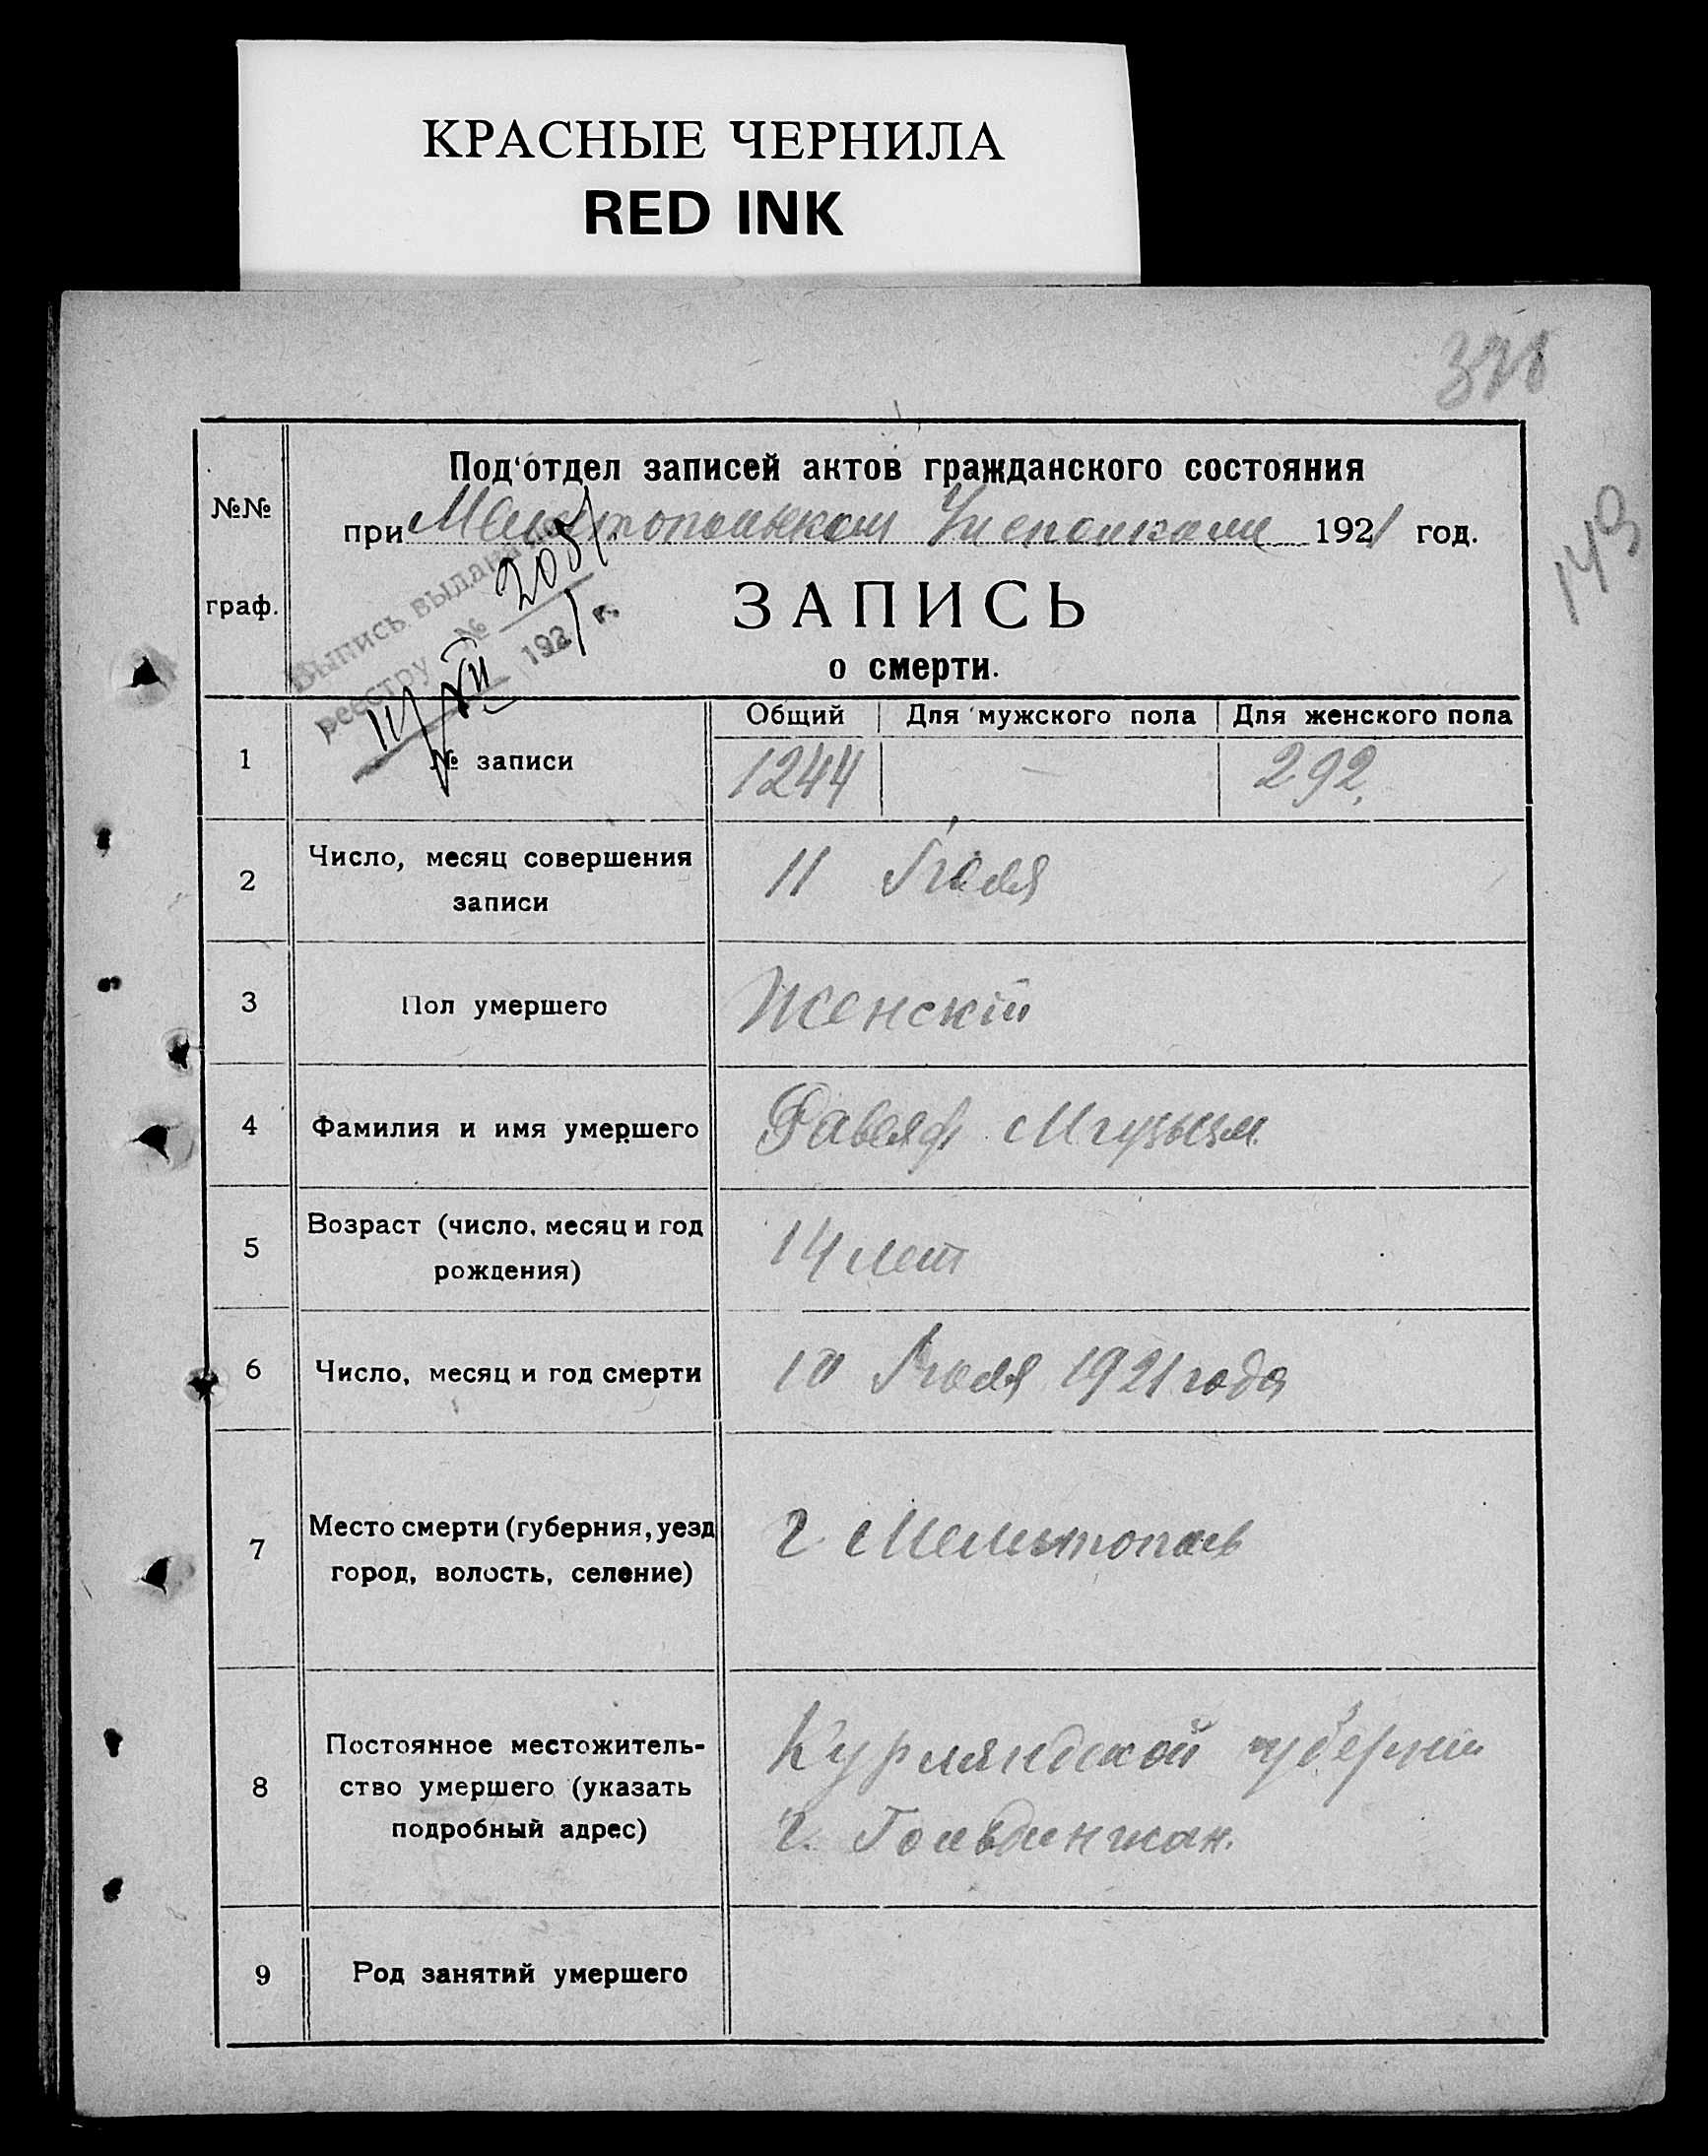 КРАСНЫЕ ЧЕРНИЛА
RED INK
Под'отдел записей актов гражданского состояния
№№
граф.
при Мелитопольском 1921 год.
143
Выпись выдана по
реестру № 2051
11/XII 1921 г.
ЗАПИСЬ
о смерти.
1 № записи
Общий Для мужского пола Для женского пола
1244 — 292.
2 Число, месяц совершения
записи
11 Июля
3 Пол умершего Женскій
4 Фамилия и имя умершего
5 Возраст (число, месяц и год
рождения)
14 лет
6 Число, месяц и год смерти 10 Июля 1921 года
7 Место смерти (губерния, уезд
город, волость, селение)
г. Мелитополь
8 Постоянное местожитель-
ство умершего (указать
подробный адрес)
Курляндской губерніи
г.
9 Род занятий умершего